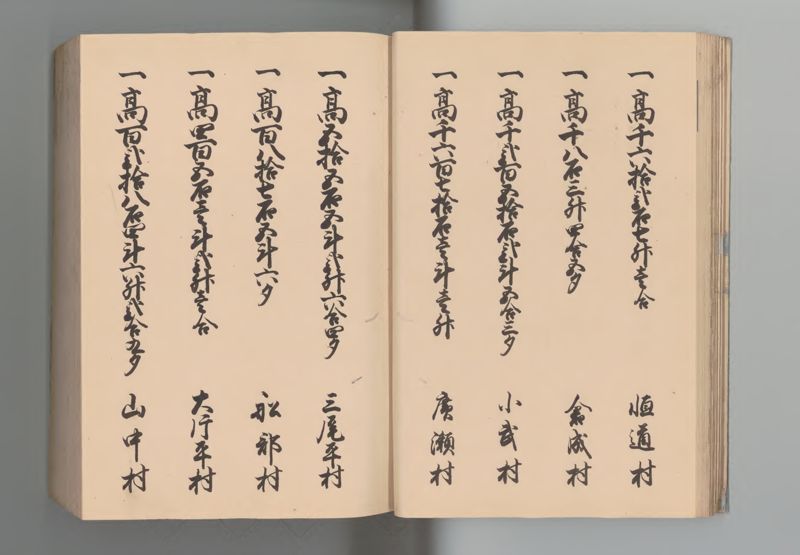 一高千六拾弐石七升壱合 恒道村
一高千八石三升四合五夕 倉成村
一高千弐百五拾石弐斗五合三夕 小武村
一高千六百七拾石壱斗壱升 廣瀬村
一高五拾五石五斗弐升六合四夕 三尾平村
一高百八拾七石五斗六夕 船部村
一高四百五石壱斗弐升壱合 大行平村
一高百弐拾八石四斗六升弐合五夕 山中村